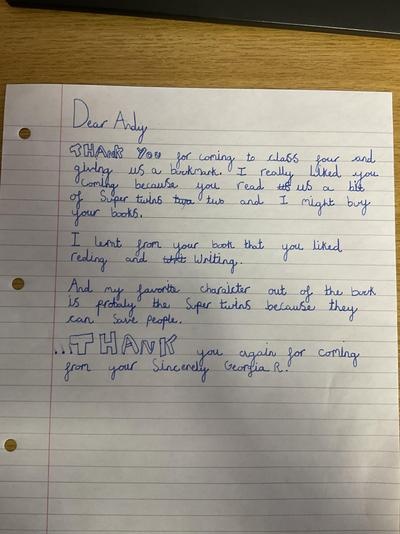 Dear Andy
THANK You for coming to class four and
giving us a bookmark. I really liked you
coming because you read us a bit
of Super twins two and I might buy
your books.
I lernt from your book that you liked
reding and writing.
And my favorite charaicter out of the book
is probaly the Super twins because they
can save people.
..THANK you again for coming
from your Sincerely Georgia R.